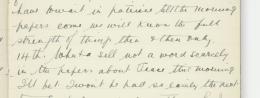 have to wait in patience till the morning
papers come we will know the full
strength of things then & then only.
14th. What a sell not a word scarcely
in the papers about Jesse this morning
I'll bet I wont be had so easily the next